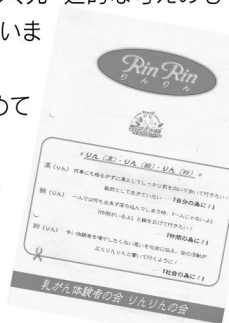 進的な考えのも
いま
めて
Rin Rin
りんりん
りん（凛）・りん（輪）・りん（鈴）
（りん） 何事にも
しっかり前を向いて歩いて行きたい！
毅然として生きていたい
「自分の為に！」
（りん） 一人では何も出来ず落ち込んでしまう時、「一人じゃないよ」
「仲間がいるよ」と輪を広げて行きたい！
「仲間の為に！」
鈴（りん） 辛い体験者を増やしたくない思いを社会に伝え、会の活動が
広くりんりんと響いて行くように！
「社会の為に！」
乳がん体験者の会 りんりんの会